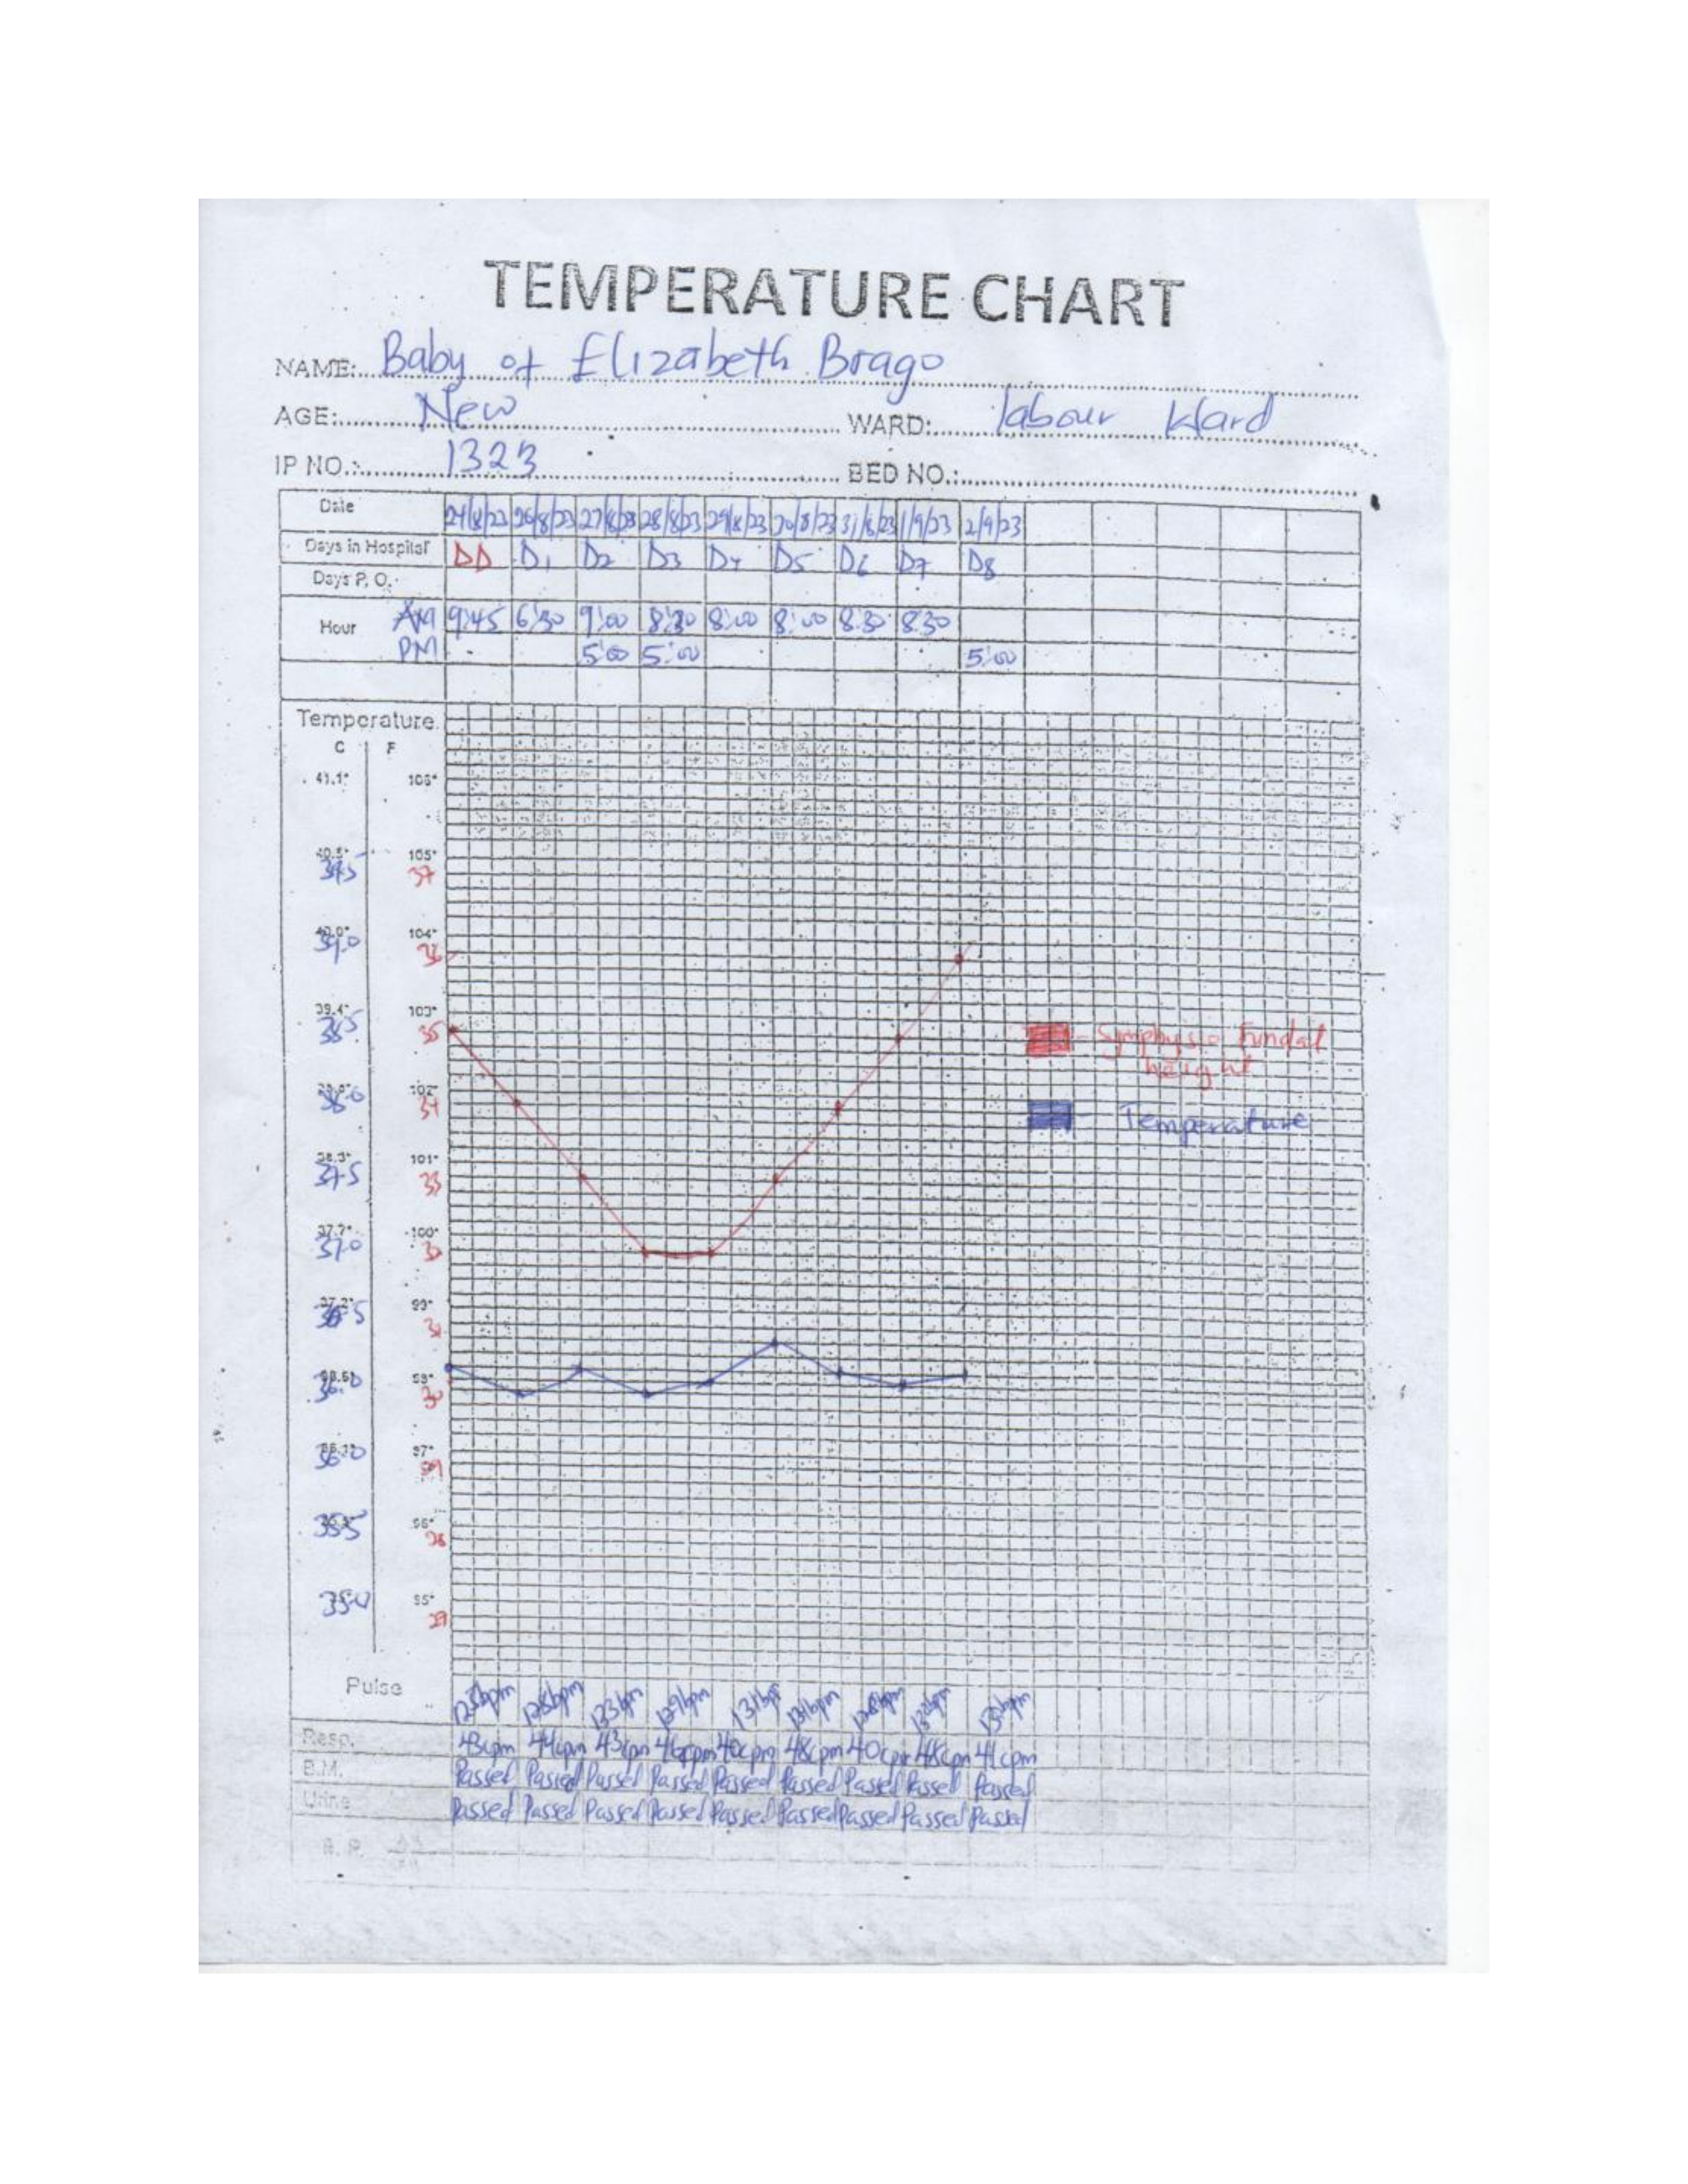 TEMPERATURE CHART
NAME: Baby of Elizabeth Brago
AGE: New WARD: labour Ward
IP NO.: 1323 BED NO.:
Date 26/8/23 27/8/23 28/8/23 29/8/23 30/8/23 31/8/23 1/9/23 2/9/23
Days in Hospital DD D1 D2 D3 D4 D5 D6 D7 D8
Days P. O.
Hour AM 9:45 6:30 9:00 8:30 8:00 8:00 8:30 8:30
PM 5:00 5:00 5:00
Temperature
C F
41.1° 106°
40.5° 105°
39.5 37
40.0° 104°
39.0
39.4° 103°
38.5 35
102°
38.0 34
38.3° 101°
37.5 33
37.7° 100°
37.0
37.2° 99°
36.5 31
98°
36.0 30
97°
36.0 29
96°
35.5 28
95°
35.0 27
Symphysio fundal
height
Temperature
Pulse 128bpm 133bpm 129bpm 131bpm 131bpm 128bpm 132bpm
Resp. 43cpm 44cpm 43cpm 46cpm 40cpm 48cpm 40cpm 48cpm 41cpm
B.M. Passed Passed Passed Passed Passed Passed Passed Passed Passed
Urine Passed Passed Passed Passed Passed Passed Passed Passed Passed
B. P.